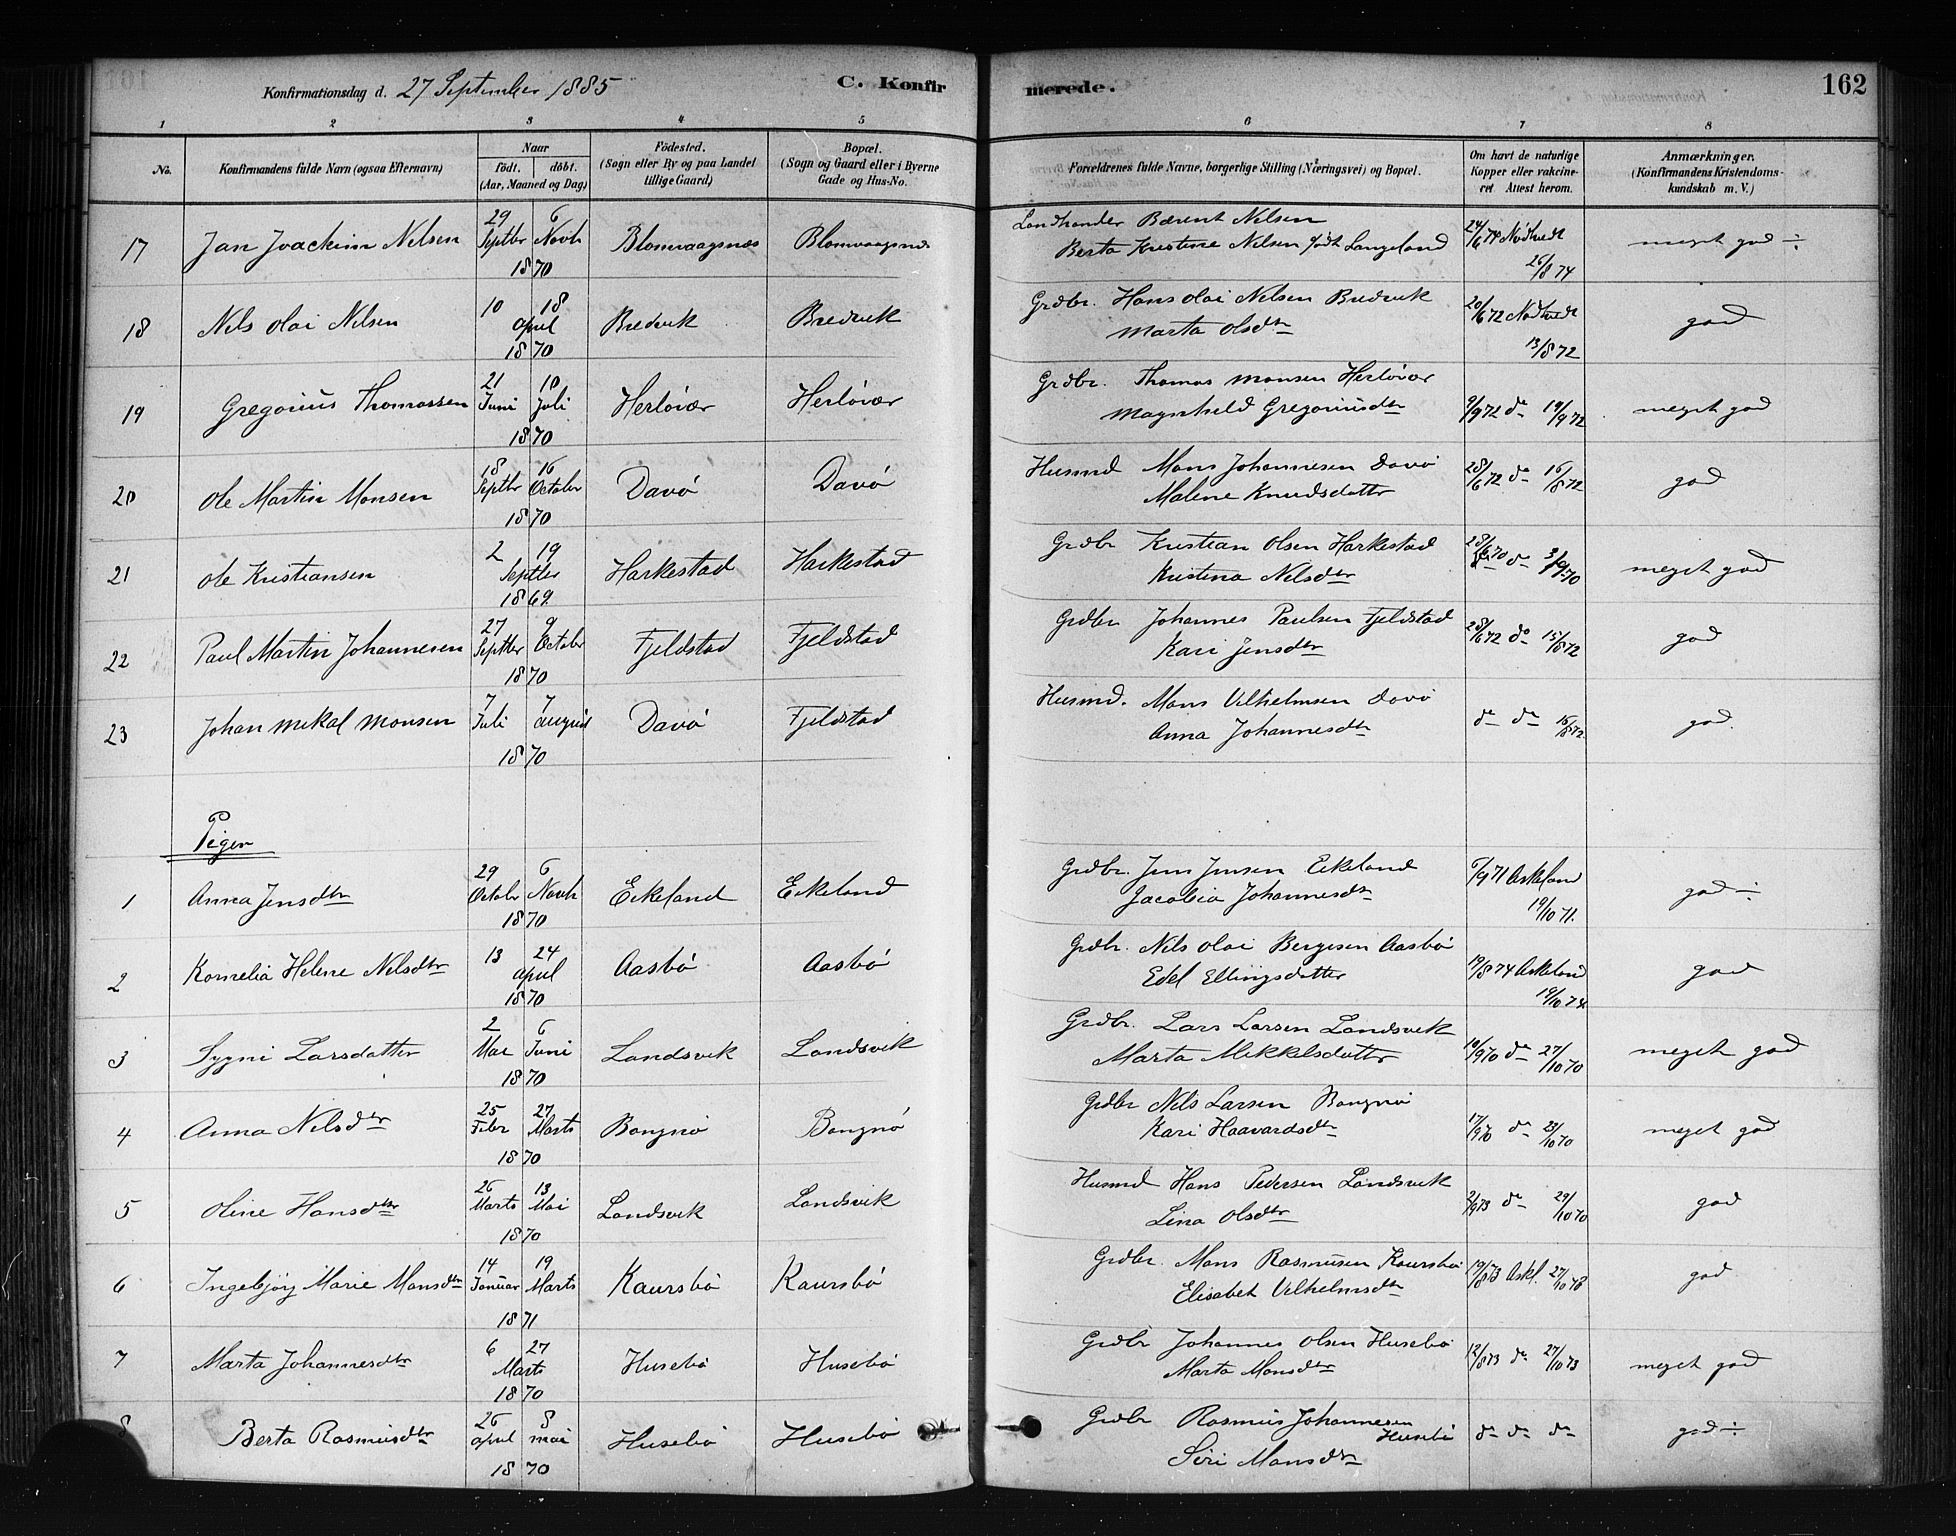 Konfirmationsdag d. 27 September 1885 C. Konfir merede. 162
1 2 3 4 5 6 7 8
No. Konfirmandens fulde Navn (ogsaa Efternavn) Naar født. døbt. (Aar, Maaned og Dag) Fødested. (Sogn eller By og paa Landet tillige Gaard) Bopæl. (Sogn og Gaard eller i Byerne Gade og Hus-No. Forældrenes fulde Navne, borgerlige Stilling (Næringsvei) og Bopæl. Om havt de naturlige Kopper eller vakcineret. Attest herom. Anmærkninger. (Konfirmandens Kristendomskundskab m. V.)
17 Jan Joachim Nelsen 29 Septbr 6 Novbr 1870 Blomvaagsnæs Blomvaagsnæs Landhandler Bærent Nelsen
Berta Kristine Nelsen født Langeland 24/6 74 Nødtvedt 26/8 74 meget god ÷
18 Nels Olai Nelsen 10 18 april 1870 Bredvik Bredvik Grdbr. Hans Olai Nelsen Bredvik
Marta Olsdtr 20/6 72 Nødtvedt 13/8 72 god
19 Gregorius Thomassen 21 Juni 10 Juli 1870 Herløvær Herløvær Grdbr. Thomas Monsen Herløvær
Magnhild Gregoriusdtr 9/9 72 do 19/9 72 meget god
20 Ole Martin Monsen 18 Septbr 16 October 1870 Davø Davø Husmd Mons Johannesen Davø
Malene Knudsdatter 28/6 72 do 16/8 72 god
21 Ole Kristiansen 2 19 Septbr 1869 Harkestad Harkestad Grdbr Kristian Olsen Harkestad
Kristina Nelsdtr do 3/9 70 meget god
22 Paul Martin Johannesen 27 Septbr 9 October 1870 Fjeldstad Fjeldstad Grdbr Johannes Paulsen Fjeldstad
Kari Jensdtr 28/6 72 do 15/8 72 god
23 Johan Mikal Monsen 7 Juli 7 august 1870 Davø Fjeldstad Husmd. Mons Vilhelmsen Davø
Anna Johannesdtr do do 16/8 72 god
Piger
1 Anna Jensdtr 29 October 6 Novbr 1870 Eikeland Eikeland Grdbr. Jens Jensen Eikeland
Jacobia Johannesdtr 6/9 71 Askeland 19/10 71. god ÷
2 Kornelia Helene Nelsdtr 13 24 april 1870 Aasbø Aasbø Grdbr. Nils Olai Bergesen Aasbø
Edel Ellingsdatter 19/8 74 Askeland 19/10 74 god
3 Sygni Larsdatter 2 Mai 6 Juni 1870 Landsvik Landsvik Grdbr. Lars Larsen Landsvik
Marta Mikkelsdatter 10/9 70 do 27/10 70 meget god
4 Anna Nilsdtr 25 Febr 27 Marts 1870 Bongnø Bongnø Grdbr Nils Larsen Bongnø
Kari Haavardsdtr 17/9 70 do 28/10 70 meget god
5 Oline Hansdtr 26 Marts 13 Mai 1870 Landsvik Landsvik Husmd Hans Pedersen Landsvik
Lina Olsdtr 2/9 73 do 29/10 70 god
6 Ingebjørg Marie Monsdtr 14 Januar 19 Marts 1871 Kaursbø Kaursbø Grdbr. Mons Rasmusen Kaursbø
Elisabet Vilhelmsdtr 19/8 73 Askl. 27/10 78 god
7 Marta Johannesdtr 6 27 Marts 1870 Husebø Husebø Grdbr Johannes Olsen Husebø
Marta Monsdtr 12/8 73 do 27/10 73 meget god
8 Berta Rasmusdtr 26 april 8 mai 1870 Husebø Husebø Grdbr Rasmus Johannesen Husebø
Siri Monsdtr do do do god ÷